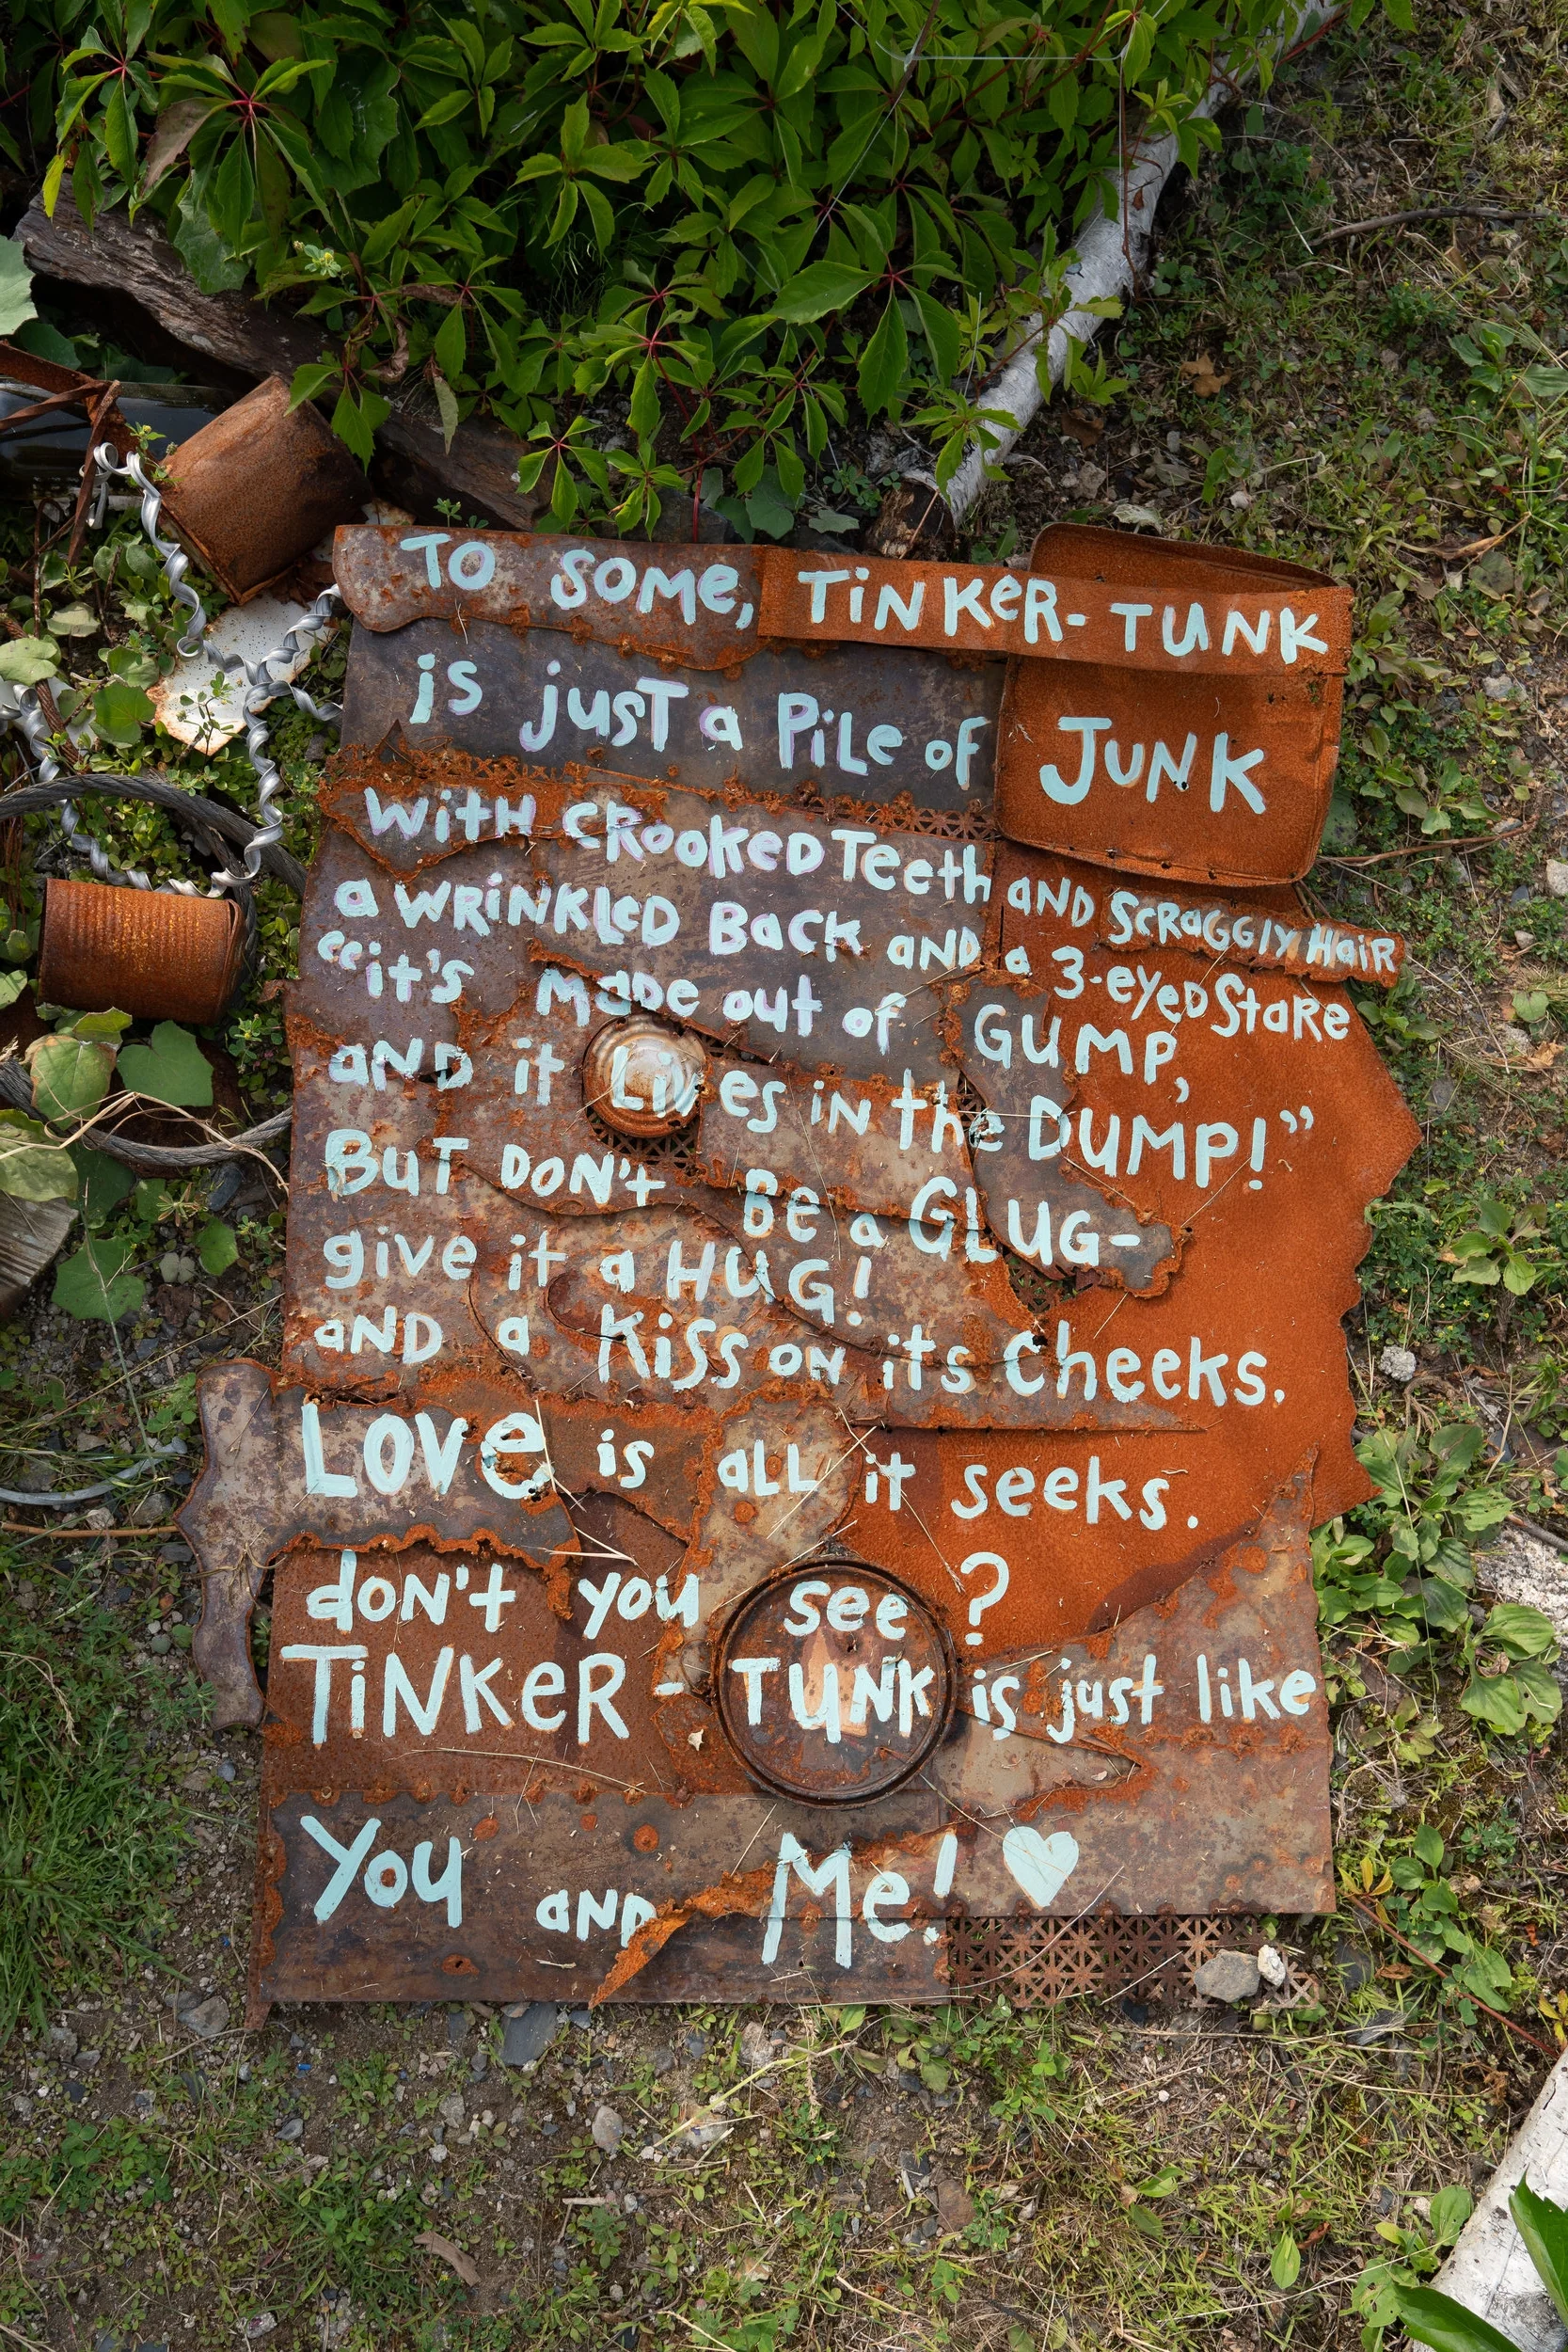 TO SOME, TiNKeR-TUNK
is jusT a PiLe of JUNK
WitH CRooKeD Teeth AND ScRaGGlY HaiR
a WRiNKLeD BacK AND a 3-eyeD StaRe
"it's MaDe out of GUMP,
AND it Lives iN the DUMP!"
BuT DON't Be a GLUG-
give it a HUG!
AND a Kiss ON its Cheeks.
LOVe is aLL it seeks.
dON't you see?
TiNKeR-TUNK is just like
You AND Me! ♥